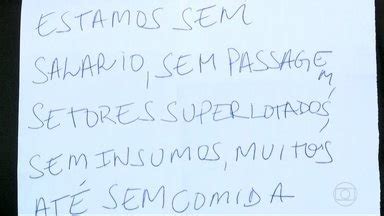 ESTAMOS SEM
SALARIO, SEM PASSAGEM,
SETORES SUPERLOTADOS,
SEM INSUMOS, MUITOS
ATÉ SEM COMIDA